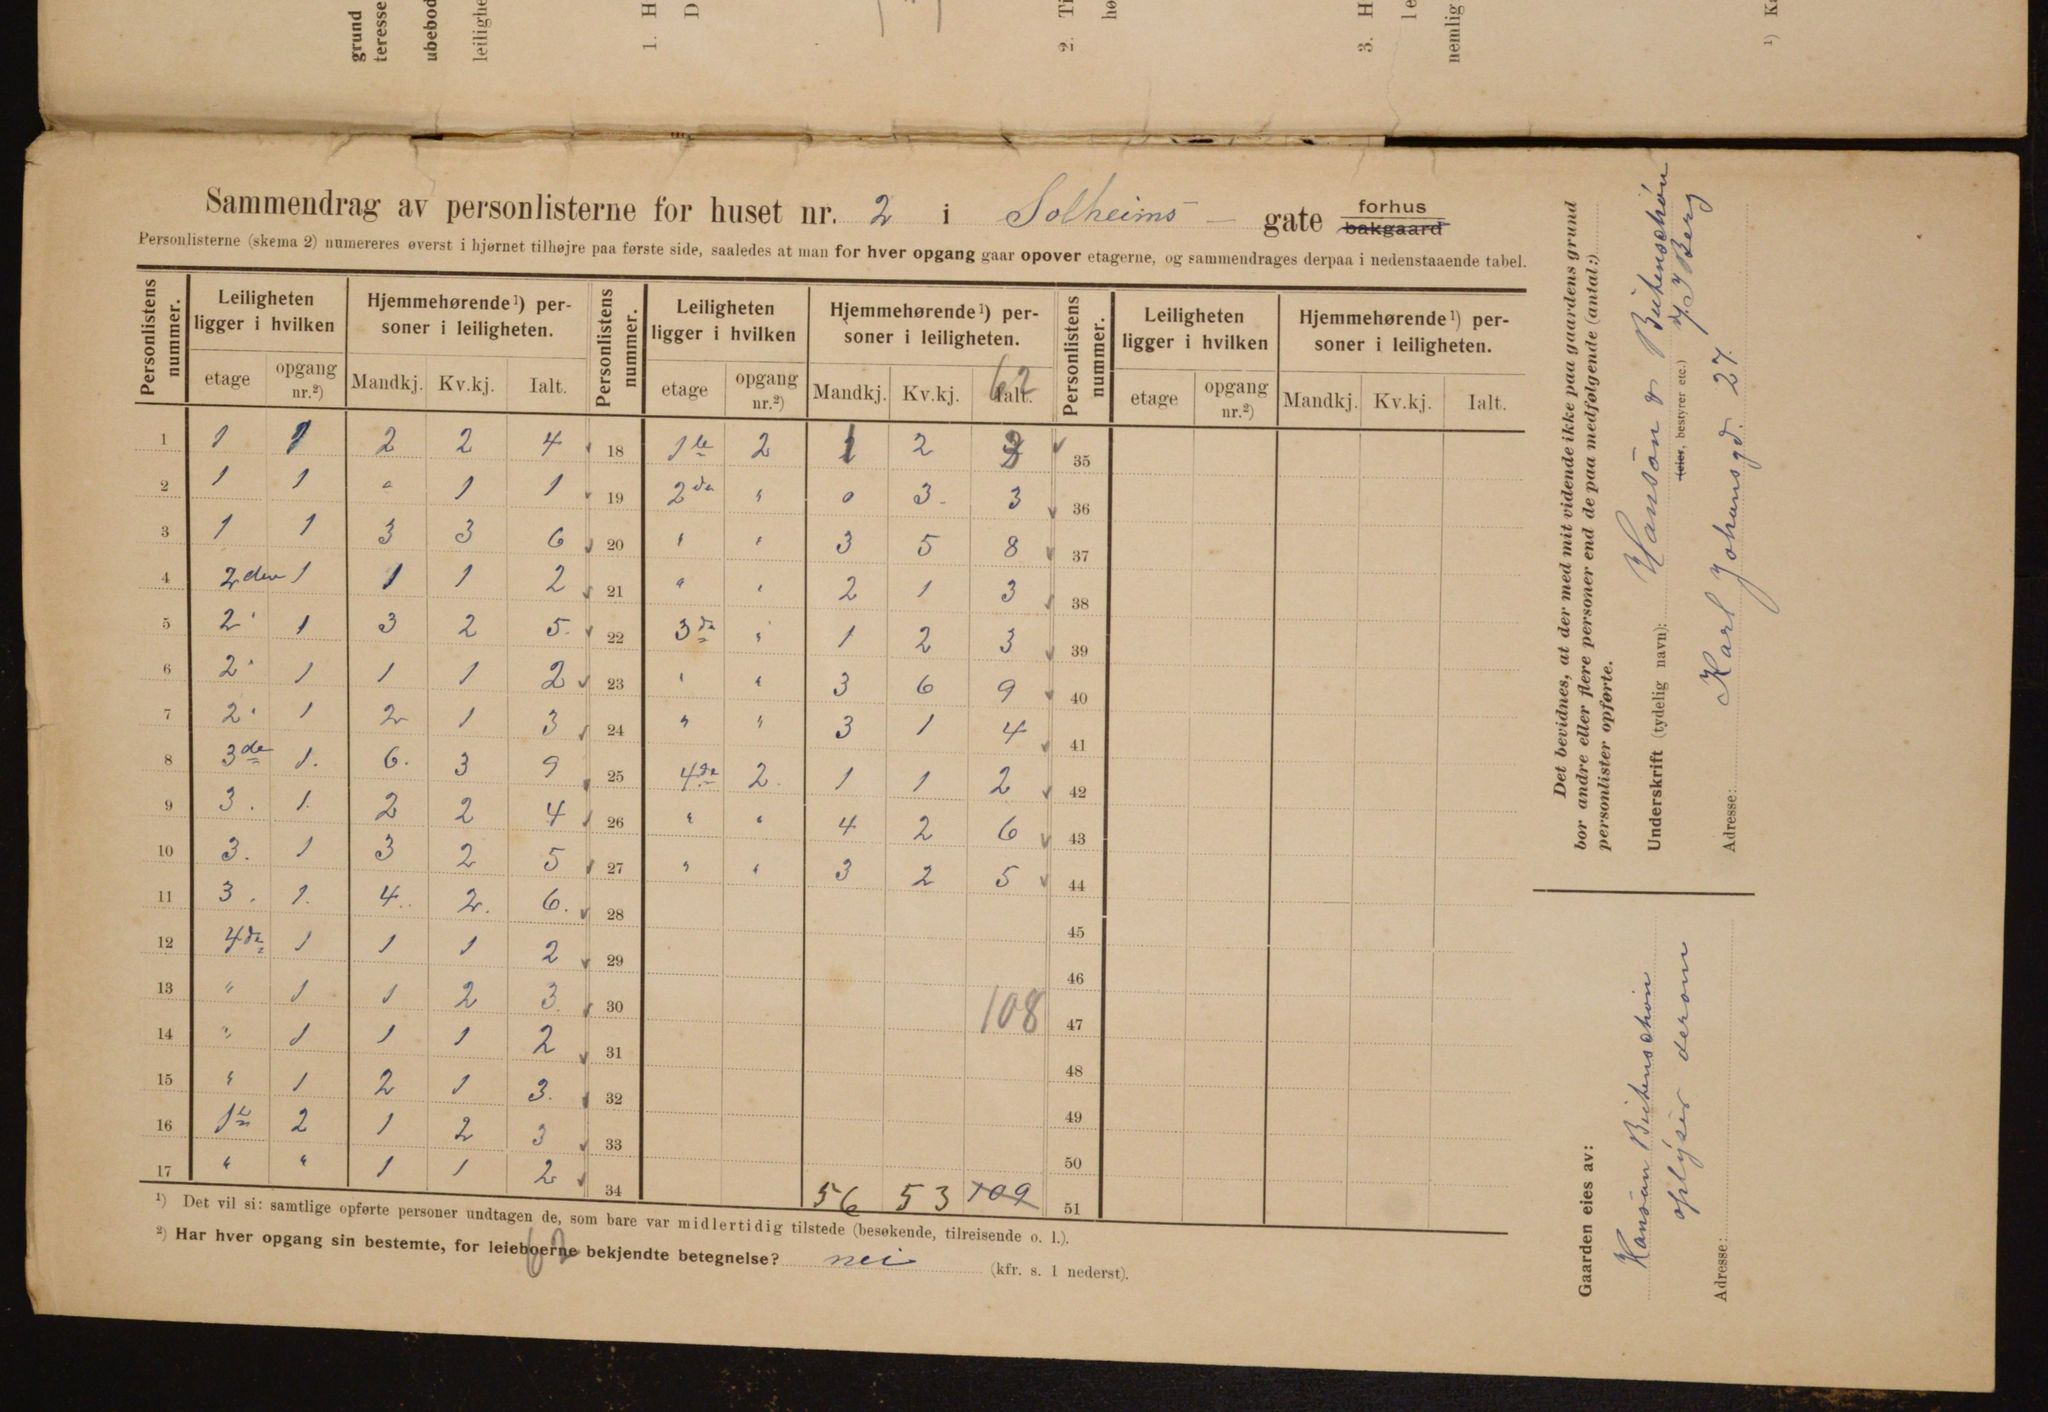 grund
teresse
ubebod
leilighe
1. H
D
2. Ti
hø
3. H
le
nemlig
¹) Ka
Sammendrag av personlisterne for huset nr. 2 i Solheims gate forhus bakgaard
Personlisterne (skema 2) numereres øverst i hjørnet tilhøjre paa første side, saaledes at man for hver opgang gaar opover etagerne, og sammendrages derpaa i nedenstaaende tabel.
Personlistens nummer. Leiligheten ligger i hvilken Hjemmehørende¹) personer i leiligheten. Personlistens nummer. Leiligheten ligger i hvilken Hjemmehørende¹) personer i leiligheten. Personlistens nummer. Leiligheten ligger i hvilken Hjemmehørende¹) personer i leiligheten.
etage opgang nr.²) Mandkj. Kv.kj. Ialt. etage opgang nr.²) Mandkj. Kv.kj. Ialt. etage opgang nr.²) Mandkj. Kv.kj. Ialt.
62
1 1 1 2 2 4 18 1ste 2 1 2 3 35
2 1 1 " 1 1 19 2den " 0 3 3 36
3 1 1 3 3 6 20 " " 3 5 8 37
4 2den 1 1 1 2 21 " " 2 1 3 38
5 2 " 1 3 2 5. 22 3die " 1 2 3 39
6 2 " 1 1 1 2 23 " " 3 6 9 40
7 2 " 1 2 1 3 24 " " 3 1 4 41
8 3de 1. 6. 3 9 25 4de 2. 1 1 2 42
9 3. 1. 2 2 4 26 " " 4 2 6 43
10 3. 1 3 2 5 27 " " 3 2 5 44
11 3. 1. 4. 2. 6. 28 45
12 4de 1 1 1 2 29 46
13 " 1 1 2 3 30 108 47
14 " 1 1 1 2 31 48
15 " 1 2 1 3. 32 49
16 1ste 2 1 2 3 33 50
17 " " 1 1 2 34 56 53 109 51
¹) Det vil si: samtlige opførte personer undtagen de, som bare var midlertidig tilstede (besøkende, tilreisende o. l.).
²) Har hver opgang sin bestemte, for leieboerne bekjendte betegnelse? nei (kfr. s. 1 nederst).
62
Det bevidnes, at der med mit vidende ikke paa gaardens grund
bor andre eller flere personer end de paa medfølgende (antal:)
personlister opførte.
Underskrift (tydelig navn): Hansson & Beichenschön
(eier, bestyrer etc.)
Berg
Adresse: Karl Johansgd. 27.
Gaarden eies av:
oplyser derom
Adresse: